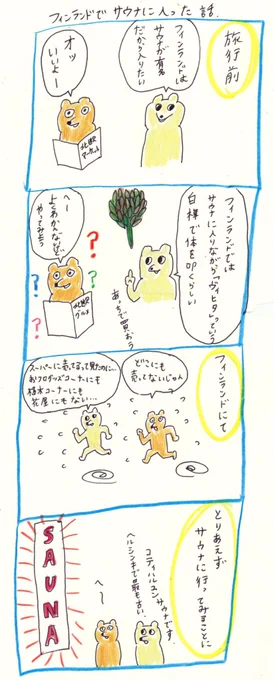 フィンランドで サウナに入った話
旅行前
フィンランドは
サウナが有名
だから入りたい
オッ
いいよー
北欧
マーケット
フィンランドでは
サウナに入りながら「ヴィヒタ」という
白樺で体を叩くらしい
あっちで買おう
へー
よくわかんないけど
やってみよう
?
?
?
?
北欧
グルメ
フィンランドにて
どこにも
売ってないじゃん
スーパーに売ってるって見たのに…
おフログッズコーナーにも
植木コーナーにも
花屋にもない…
とりあえず
サウナに行ってみることに
コティハルユンサウナです。
ヘルシンキで最も古い、
へ〜
SAUNA